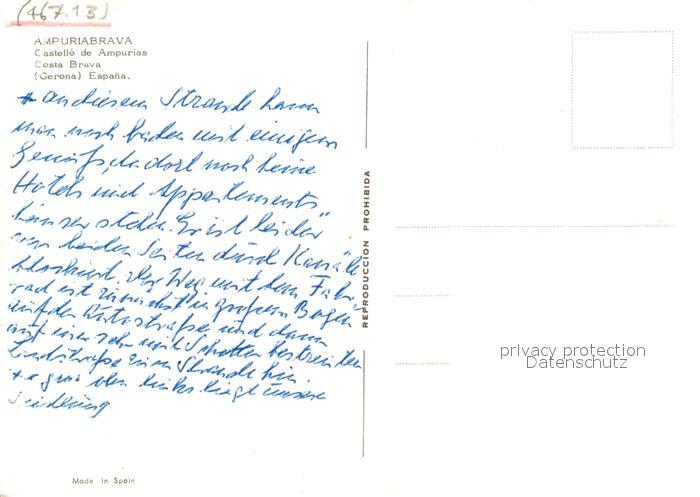 (467.13)
AMPURIABRAVA
Castelló de Ampurias
Costa Brava
(Gerona) España.
* an diesem Strande kann
man noch baden mit einigem
Genuß, da dort noch keine
Hotels und Appartements
häuser stehen. Er ist leider
von beiden Seiten durch Kanäle
blockiert. Der Weg mit dem Fahr
rad ist zunächst in großem Bogen
auf der Autostraße und dann
auf einer sehr mit Schotter bestreuten
Landstraße zum Strande hin.
** ganz oben links liegt unsere
Siedlung
REPRODUCCION PROHIBIDA
privacy protection
Datenschutz
Made In Spain